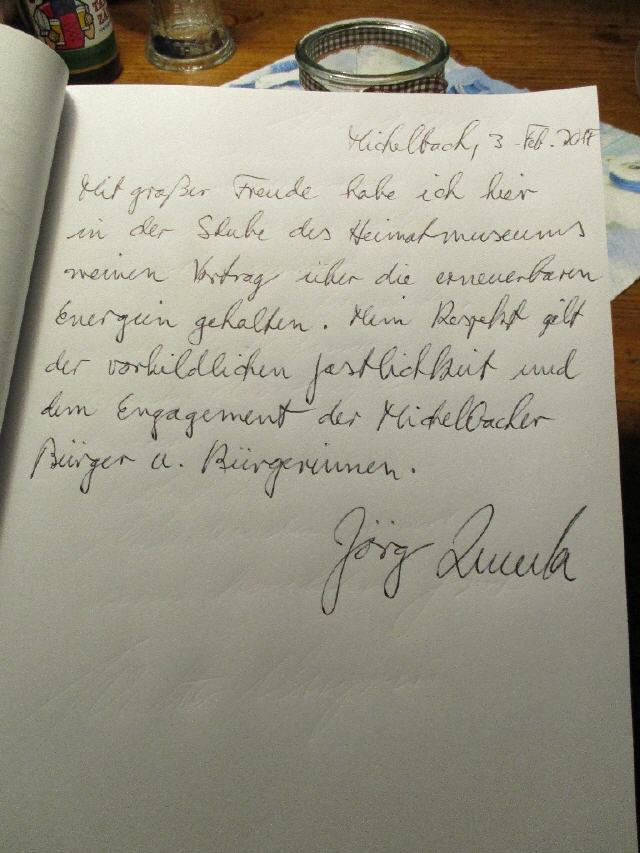 Michelbach, 3. Feb.
Mit großer Freude habe ich hier
in der Stube des Heimatmuseums
meinen Vortrag über die erneuerbaren
Energien gehalten. Mein Respekt gilt
der vorbildlichen Gastlichkeit und
dem Engagement der Michelbacher
Bürger u. Bürgerinnen.
Jörg